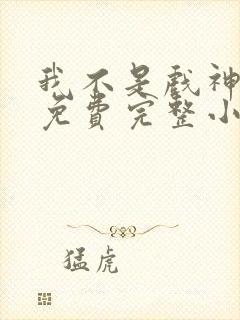 我不是戏神
免费完整小
猛虎